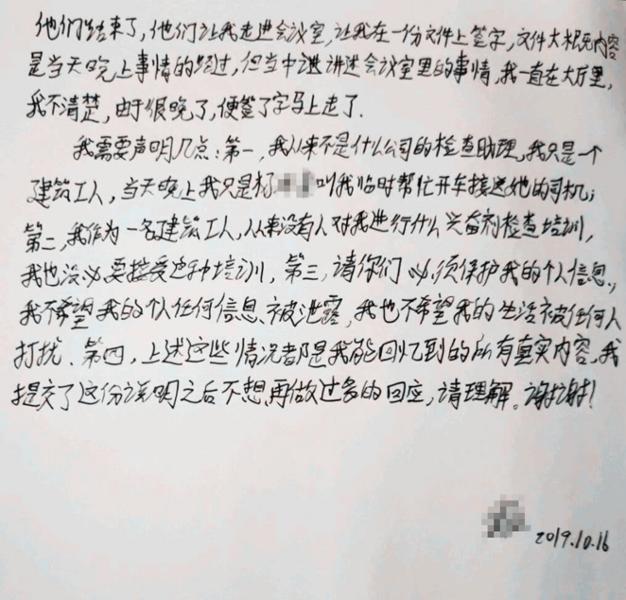 他们结束了，他们让我走进会议室，让我在一份文件上签字，文件大概是内容
是当天晚上事情的经过，但当中讲述会议室里的事情，我一直在大厅里，
我不清楚，由于很晚了，便签了字马上走了．
我需要声明几点：第一，我从来不是什么公司的检查助理，我只是一个
建筑工人，当天晚上我只是杨 叫我临时帮忙开车接送她的司机；
第二，我作为一名建筑工人，从来没有人对我进行什么兴奋剂检查培训，
我也没必要接受这种培训，第三，请你们必须保护我的个人信息，
我不希望我的个人任何信息被泄露，我也不希望我的生活被任何人
打扰．第四，上述这些情况都是我能回忆到的所有真实内容．我
提交了这份说明之后不想再做过多的回应，请理解。谢谢！
2019.10.16